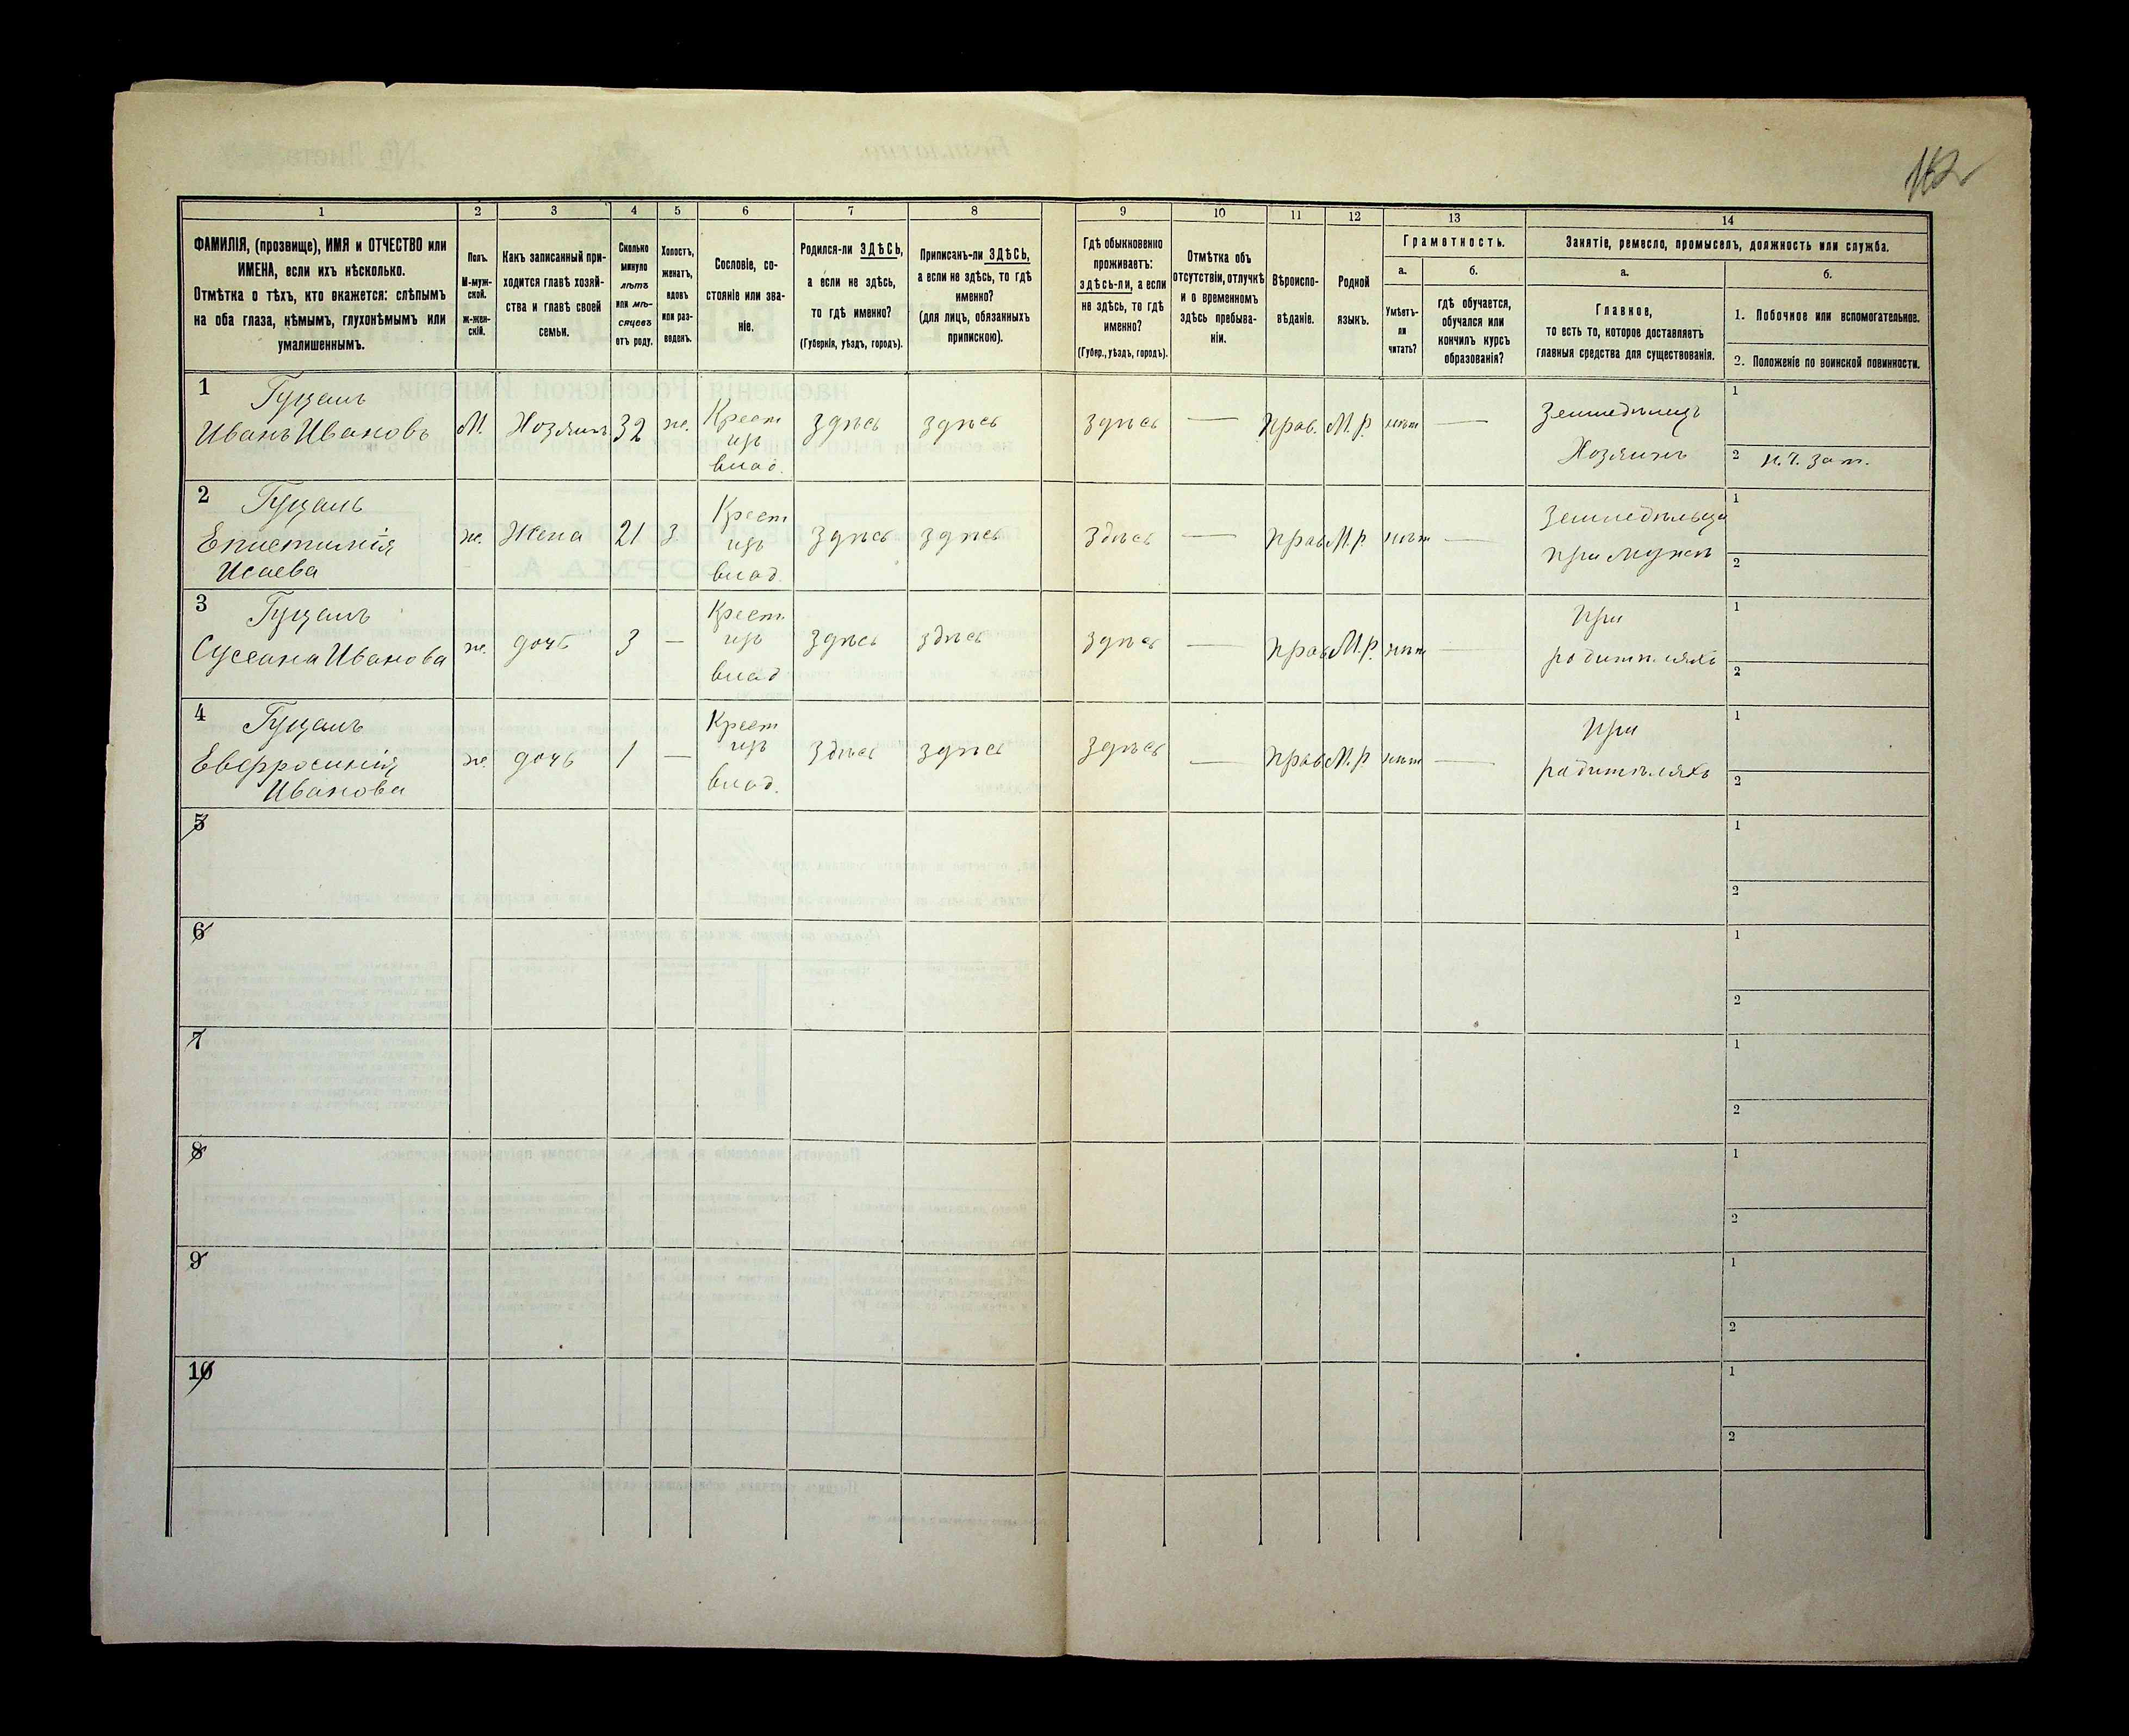 162
1 2 3 4 5 6 7 8 9 10 11 12 13 14
ФАМИЛІЯ, (прозвище), ИМЯ и ОТЧЕСТВО или
ИМЕНА, если ихъ нѣсколько.
Отмѣтка о тѣхъ, кто окажется: слѣпымъ
на оба глаза, нѣмымъ, глухонѣмымъ или
умалишеннымъ.
Полъ.
М-муж-
ской.
Ж-жен-
скій.
Какъ записанный при-
ходится главѣ хозяй-
ства и главѣ своей
семьи.
Сколько
минуло
лѣтъ
или мѣ-
сяцевъ
отъ роду.
Холостъ,
женатъ,
вдовъ
или раз-
веденъ.
Сословіе, со-
стояніе или зва-
ніе.
Родился-ли ЗДѢСЬ,
а если не здѣсь,
то гдѣ именно?
(Губернія, уѣздъ, городъ).
Приписанъ-ли ЗДѢСЬ,
а если не здѣсь, то гдѣ
именно?
(для лицъ, обязанныхъ
припискою).
Гдѣ обыкновенно
проживаетъ:
здѣсь-ли, а если
не здѣсь, то гдѣ
именно?
(Губер., уѣздъ, городъ).
Отмѣтка объ
отсутствіи, отлучкѣ
и о временномъ
здѣсь пребыва-
ніи.
Вѣроиспо-
вѣданіе.
Родной
языкъ.
Грамотность.
а.
Умѣетъ-
ли
читать?
б.
гдѣ обучается,
обучался или
кончилъ курсъ
образованія?
Занятіе, ремесло, промыселъ, должность или служба.
а.
Главное,
то есть то, которое доставляетъ
главныя средства для существованія.
б.
1. Побочное или вспомогательное.
2. Положеніе по воинской повинности.
1 Гуцалъ
Иванъ Ивановъ
М.
Хозяинъ
32
ж.
Крест
изъ
влад.
здѣсь
здѣсь
здѣсь
—
прав.
М.р.
нѣт
—
Земледѣлецъ
Хозяинъ
1
2 н.ч. зап.
2 Гуцалъ
Епистимія
Исаева
ж.
Жена
21
З
Крест
изъ
влад.
здѣсь
здѣсь
здѣсь
—
прав
М.р.
нѣт
—
Земледѣльца
при мужѣ
1
2
3 Гуцалъ
Сусанна Иванова
ж.
дочь
3
—
Крест.
изъ
влад
здѣсь
здѣсь
здѣсь
—
прав
М.р.
нѣт
—
при
родителяхъ
1
2
4 Гуцалъ
Евфросинія
Иванова
ж.
дочь
1
—
Крест
изъ
влад.
здѣсь
здѣсь
здѣсь
—
прав
М.р.
нѣт
—
при
родителяхъ
1
2
5
1
2
6
1
2
7
1
2
8
1
2
9
1
2
10
1
2